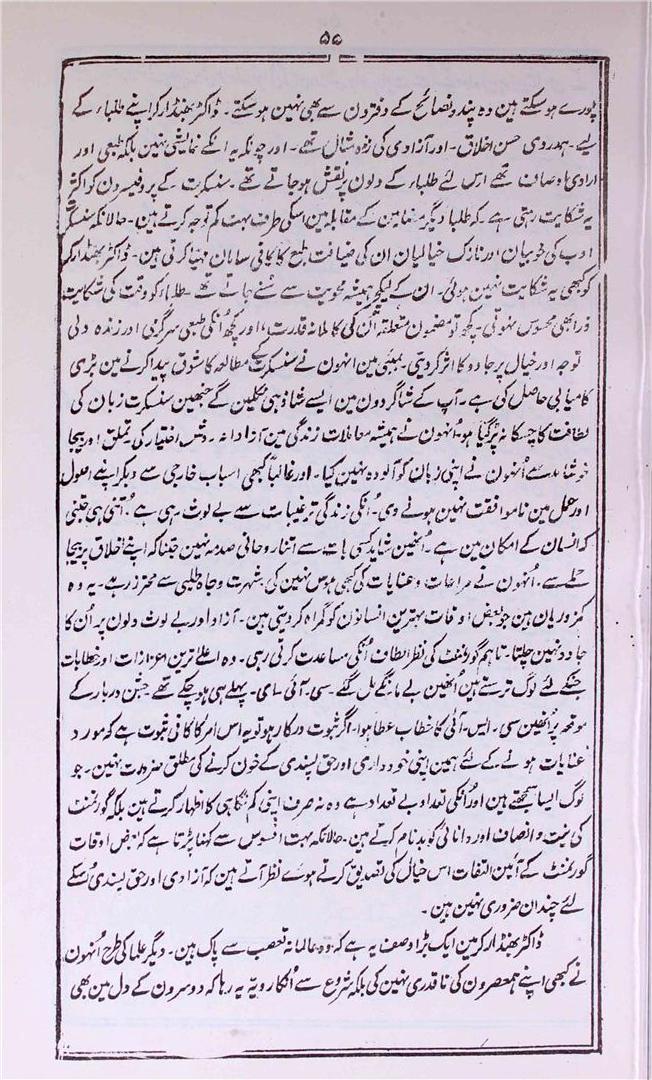 ۵۵
پورے ہو سکتے ہین وہ پند و نصائح کے دفترون سے بھی نہین ہو سکتے۔ ڈاکٹر بھنڈارکر اپنے طلباء کے
لیے۔ ہمدروی حسن اخلاق۔ اور آزادی کی زندہ مثال تھے۔ اور چونکہ یہ انکے نمائشی نہین بلکہ طبعی اور
ارادی اوصاف تھے اس لئے طلباء کے دلون پر نقش ہو جاتے تھے۔ سنسکرت کے پروفیسرون کو اکثر
یہ شکایت رہتی ہے۔ کہ طلبا دیگر مضامین کے مقابلہ مین اسکی طرف بہت کم توجہ کرتے ہین۔ حالانکہ سنسکرت
ادب کی خوبیان اور نازک خیالیان ان کی ضیافت طبع کا کافی سامان مہیا کرتی ہین۔ ڈاکٹر بھنڈارکر
کو کبھی یہ شکایت نہین ہوئی۔ ان کے لیکچر ہمیشہ محویت سے سُنے جاتے تھے۔ طلباء کو وقت کی شکایت
ذرا بھی محسوس نہوتی۔ کچھ تو مضمون متعلقہ پر اُن کی کاملانہ قدرت، اور کچھ اُنکی طبعی سرگرمی اور زندہ دلی
توجہ اور خیال پر جادو کا اثر کر دیتی۔ بمبئی مین انہون نے سنسکرت کے مطالعہ کا شوق پیدا کرنے مین بڑی
کامیابی حاصل کی ہے۔ آپ کے شاگردون مین ایسے شاذ ہی نکلین گے جنھین سنسکرت زبان کی
لطافت کا چسکا نہ پڑ گیا ہو۔ اُنہون نے ہمیشہ معاملات زندگی مین آزادانہ روش اختیار کی تملق اور بیجا
خوشامد سے اُنہون نے اپنی زبان کو آلودہ نہین کیا۔ اور غالباً کبھی اسباب خارجی سے دیکر اپنے اصول
اور عمل مین ناموافقت نہین ہونے دی۔ اُنکی زندگی ترغیبات سے بے لوث رہی ہے۔ اُتنی ہی جتنی
کہ انسان کے امکان مین ہے۔ اُنھین شاید کسی بات سے اتنا روحانی صدمہ نہین جتنا کہ اپنے اخلاق پر بیجا
حملے سے۔ اُنہون نے مراعات و عنایات کی کبھی ہوس نہین کی۔ شہرت و جاہ طلبی سے محترز رہے۔ یہ وہ
کمزوریان ہین جو بعض اوقات بہترین انسانون کو گمراہ کر دیتی ہین۔ آزاد اور بے لوث دلون پر اُن کا
جادو نہین چلتا۔ تاہم گورنمنٹ کی نظر الطاف اُنکی مساعدت کرتی رہی۔ وہ اعلےٰ ترین اعزازات اور خطابات
جنکے لئے لوگ ترستے ہین اُنھین بے مانگے مل گئے۔ سی۔ آئی۔ ای۔ پہلے ہی ہو چکے تھے۔ جشن دربار کے
موقعہ پر اُنھین سی۔ ایس۔ آئی کا خطاب عطا ہوا۔ اگر ثبوت درکار ہو تو یہ اس امر کا کافی ثبوت ہے کہ مورد
عنایات ہونے کے لئے ہمین اپنی خودداری اور حق پسندی کے خون کرنے کی مطلق ضرورت نہین۔ جو
لوگ ایسا سمجھتے ہین اور اُنکی تعداد بے تعداد ہے وہ نہ صرف اپنی کم نگاہی کا اظہار کرتے ہین بلکہ گورنمنٹ
کی نیت و انصاف اور دانائی کو بدنام کرتے ہین۔ حالانکہ بہت افسوس سے کہنا پڑتا ہے کہ بعض اوقات
گورنمنٹ کے آئین التفات اس خیال کی تصدیق کرتے ہوئے نظر آتے ہین کہ آزادی اور حق پسندی اُسکے
لئے چندان ضروری نہین ہین۔
ڈاکٹر بھنڈارکر مین ایک بڑا وصف یہ ہے کہ وہ عالمانہ تعصب سے پاک ہین۔ دیگر علما کی طرح اُنہون
نے کبھی اپنے ہمعصرون کی ناقدری نہین کی بلکہ شروع سے اُنکا رویہ یہ رہا کہ دوسرون کے دل مین بھی